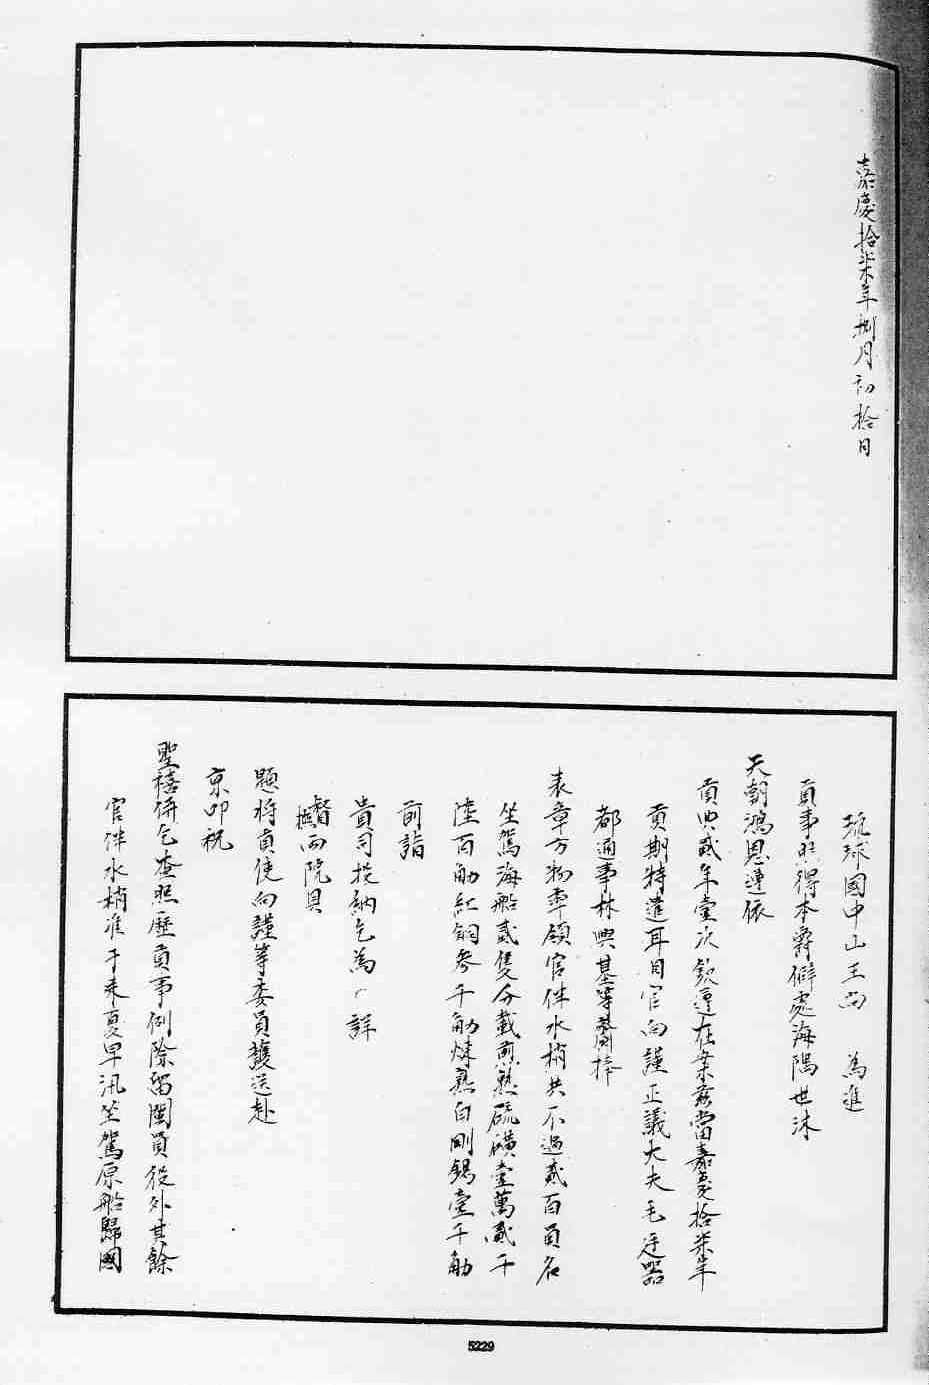 嘉慶拾柒年捌月初拾日
琉球國中山王尚　為進
貢事照得本爵僻處海隅世沐
天朝鴻恩遵依
貢典貳年壹次欽遵在案茲當嘉慶拾柒年
貢期特遣耳目官向謹正議大夫毛廷器
都通事林興基等齎捧
表章方物率領官伴水梢共不過貳百員名
坐駕海船貳隻分載煎熟硫磺壹萬貳千
陸百觔紅銅參千觔煉熟白剛錫壹千觔
前詣
貴司投納乞為 詳
督撫兩院具
題將貢使向謹等委員護送赴
京叩祝
聖禧併乞查照歷貢事例除留閩員役外其餘
官伴水梢准于來夏早汛坐駕原船歸國
5229